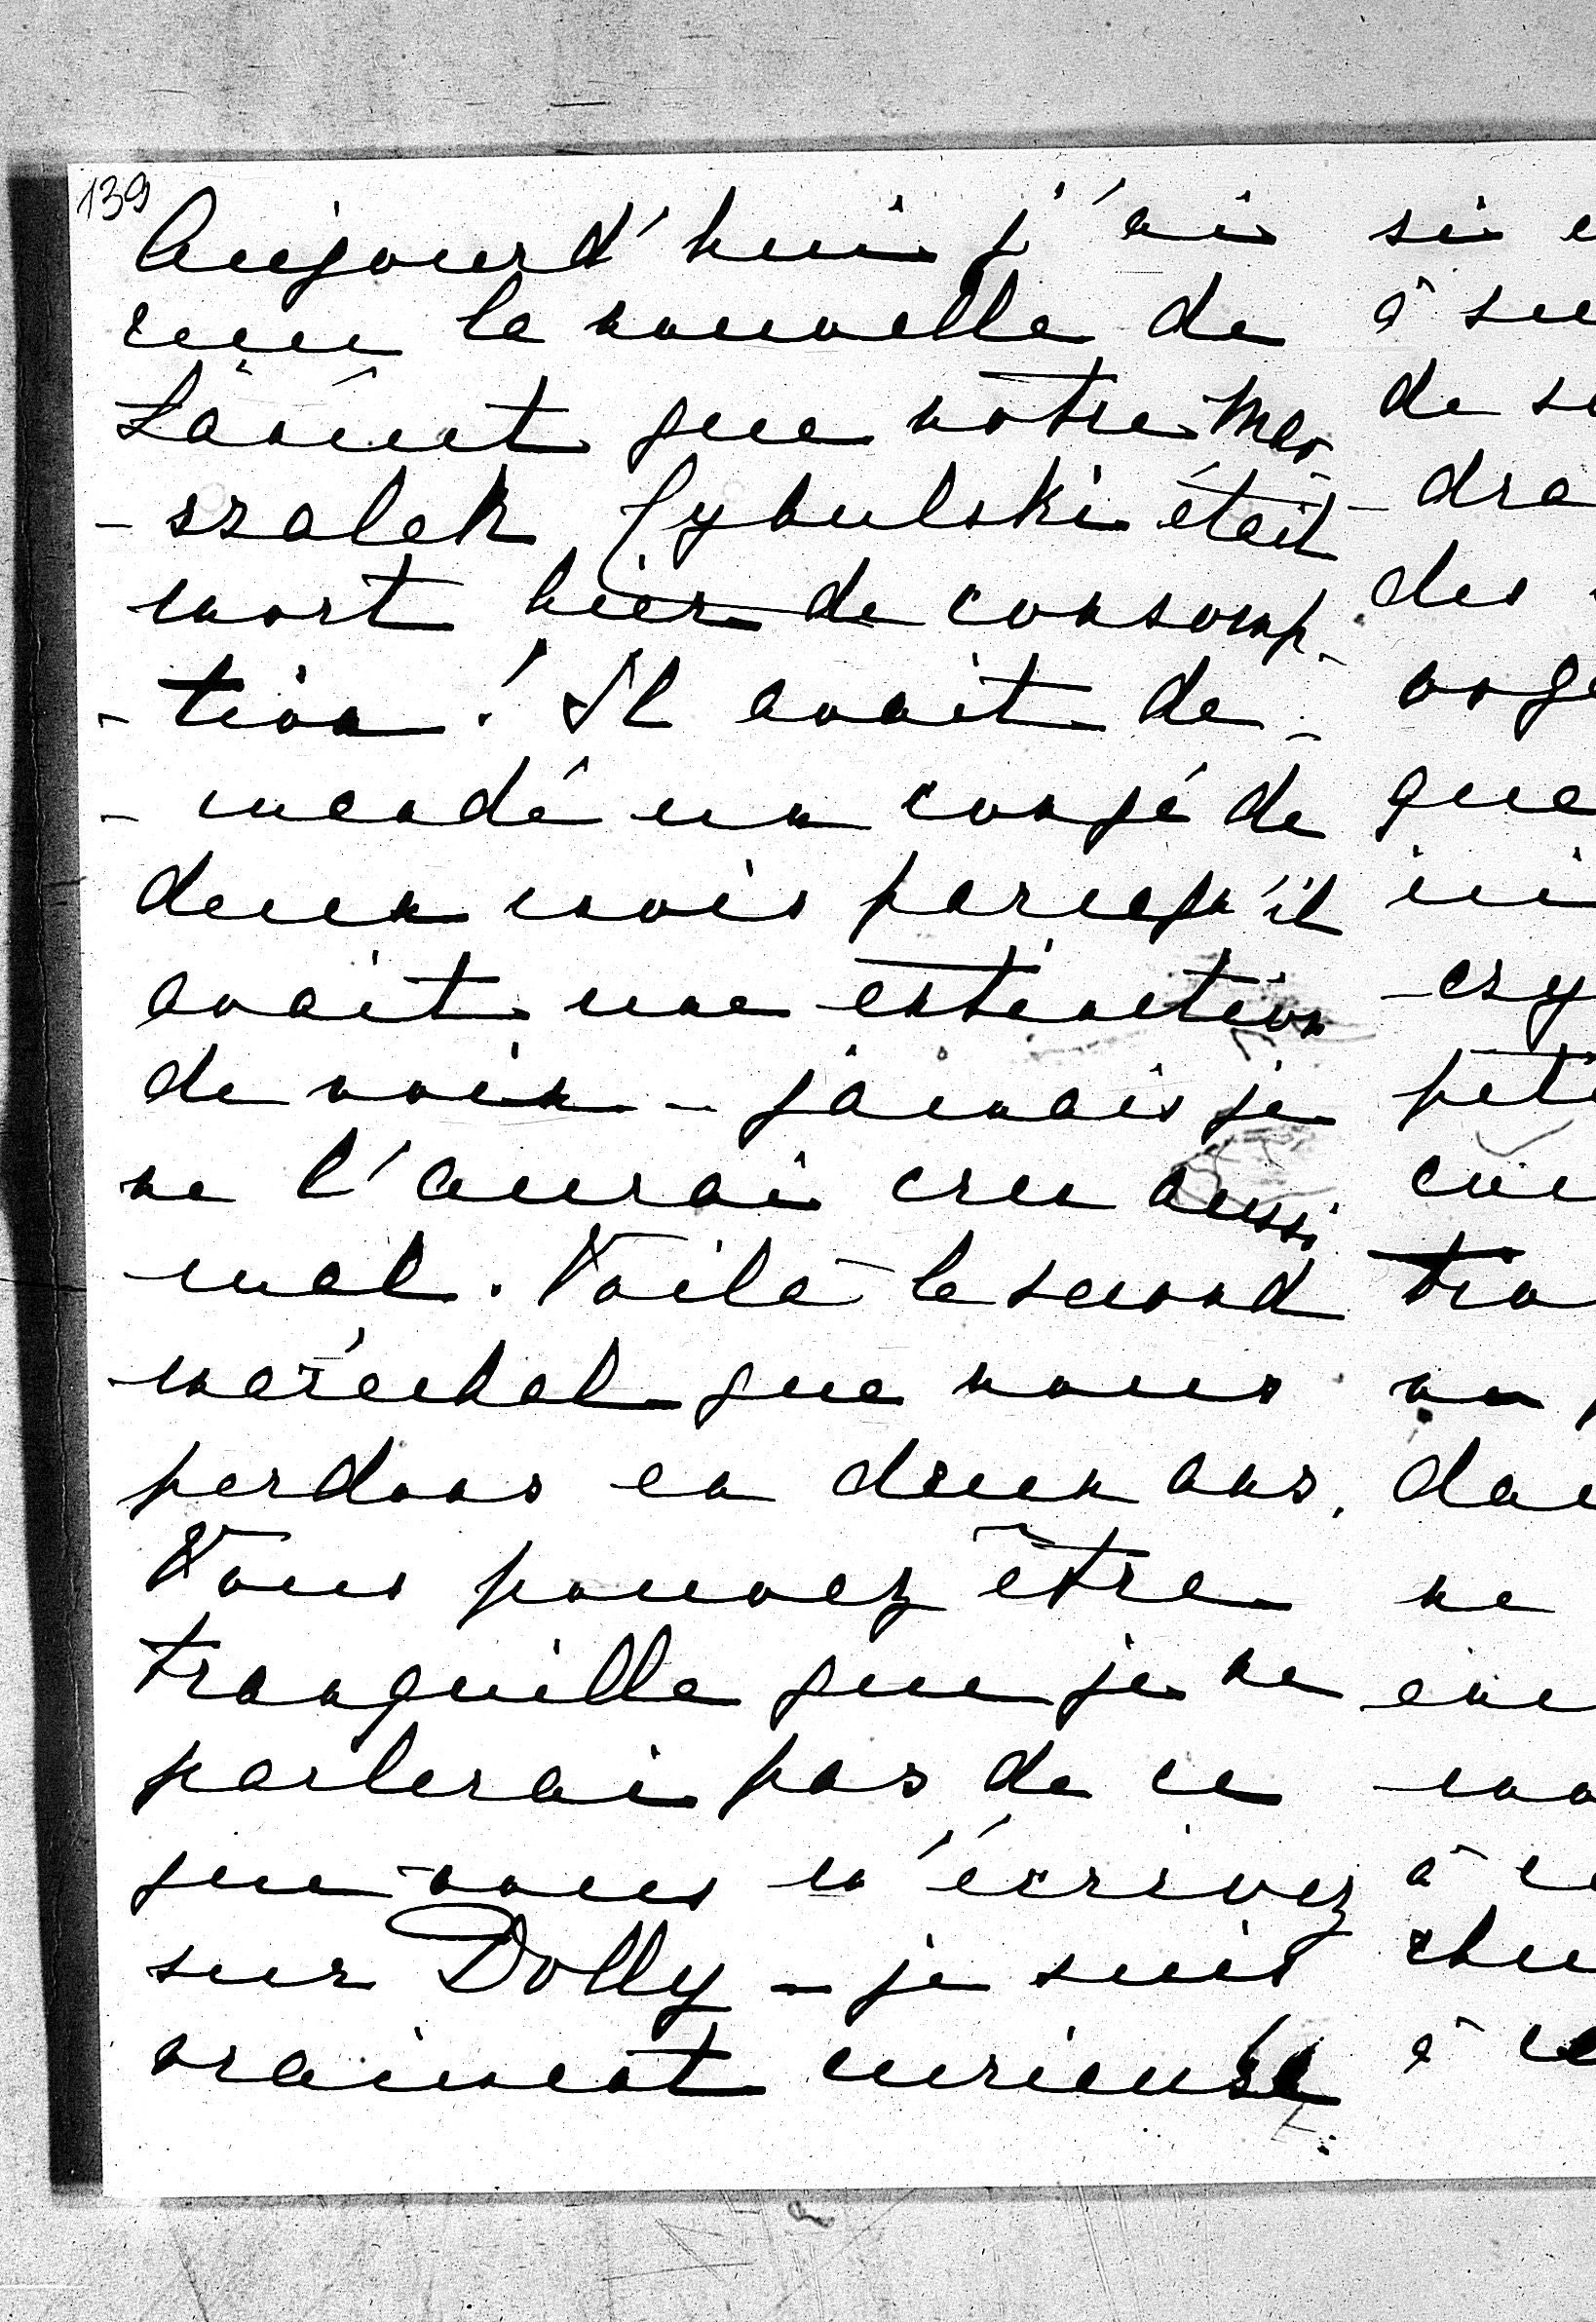 139
Aujourd'hui j'ai
reçu la nouvelle de
Łańcut que notre Mar-
-szalek Cybulski était
mort hier de consomp-
-tion! Il avait de-
-mandé un congé de
deux mois parcequ'il
avait une extinction
de voix - jamais je
ne l'aurai cru aussi
mal. Voilà le second
maréchal que nous
perdons en deux ans.
Vous pouvez être
tranquille que je ne
parlerai pas de ce
que vous m'écrivez
sur Dolly - je suis
vraiment curieuse
si
à su
de s
-dra
des
voge
que
ini
-czy
peti
tra
da
ne
à
à